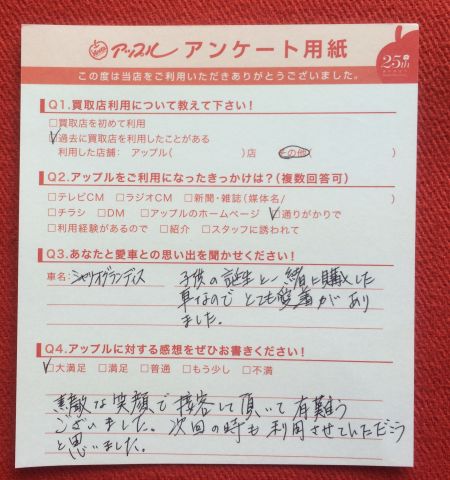 アップル アンケート用紙
25th
この度は当店をご利用いただきありがとうございました。
Q1.買取店利用について教えて下さい!
□買取店を初めて利用
☑過去に買取店を利用したことがある
利用した店舗: アップル( )店 その他( )
Q2.アップルをご利用になったきっかけは?(複数回答可)
□テレビCM □ラジオCM □新聞・雑誌(媒体名/ )
□チラシ □DM □アップルのホームページ ☑通りがかりで
□利用経験があるので □紹介 □スタッフに誘われて
Q3.あなたと愛車との思い出を聞かせください!
車名:シャリオグランディス
子供の誕生と一緒に購入した
車なので とても愛着があり
ました。
Q4.アップルに対する感想をぜひお書きください!
☑大満足 □満足 □普通 □もう少し □不満
素敵な笑顔で接客して頂いて有難う
ございました。次回の時も利用させていただこう
と思いました。